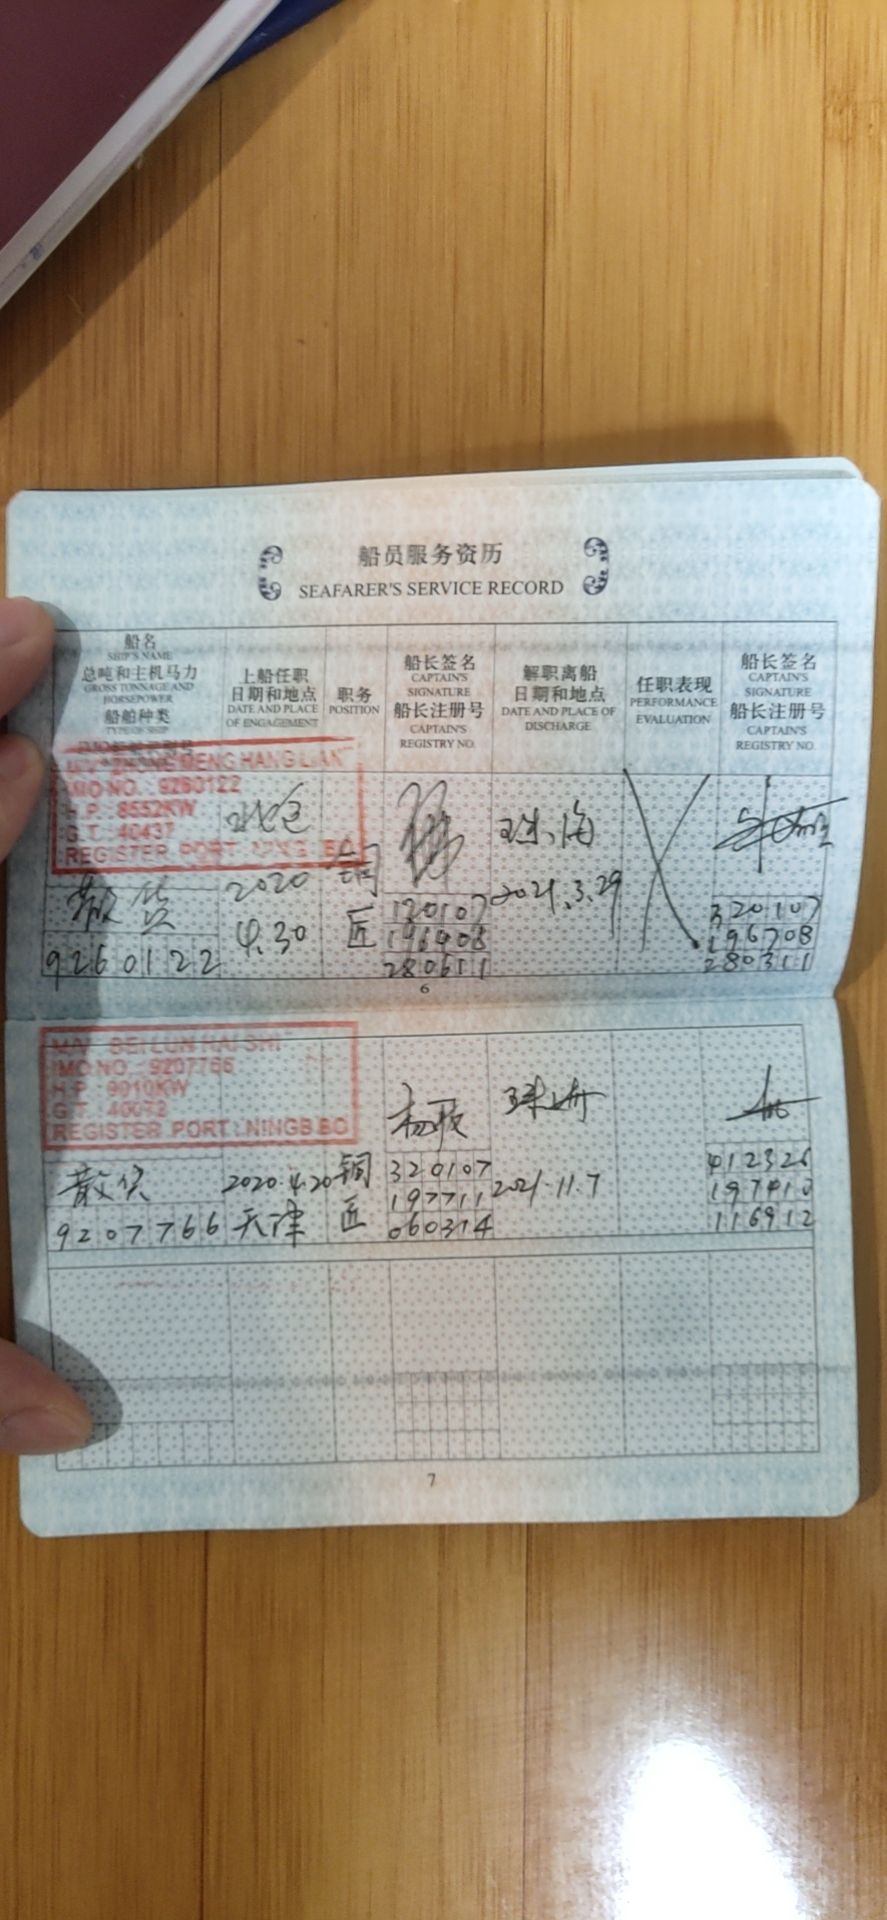 船员服务资历
SEAFARER'S SERVICE RECORD
船名
SHIP'S NAME
总吨和主机马力
GROSS TONNAGE AND
HORSEPOWER
船舶种类
TYPE OF SHIP
上船任职
日期和地点
DATE AND PLACE
OF ENGAGEMENT
职务
POSITION
船长签名
CAPTAIN'S
SIGNATURE
船长注册号
CAPTAIN'S
REGISTRY NO.
解职离船
日期和地点
DATE AND PLACE OF
DISCHARGE
任职表现
PERFORMANCE
EVALUATION
船长签名
CAPTAIN'S
SIGNATURE
船长注册号
CAPTAIN'S
REGISTRY NO.
HANG
IMO NO.: 9260122
H.P.: 8552KW
G.T.: 40437
REGISTER PORT
散货
9260122
2020
4.30
铜
匠
120107
196408
280611
珠海
2021.3.29
320107
196708
280311
6
M/V BEI LUN HAI SHI
IMO NO.: 9207766
H.P.: 9010KW
G.T.: 40072
REGISTER PORT: NINGB BO
散货
9207766
2020.4.20
天津
铜
匠
320107
197711
060314
2021.11.7
412326
116912
7